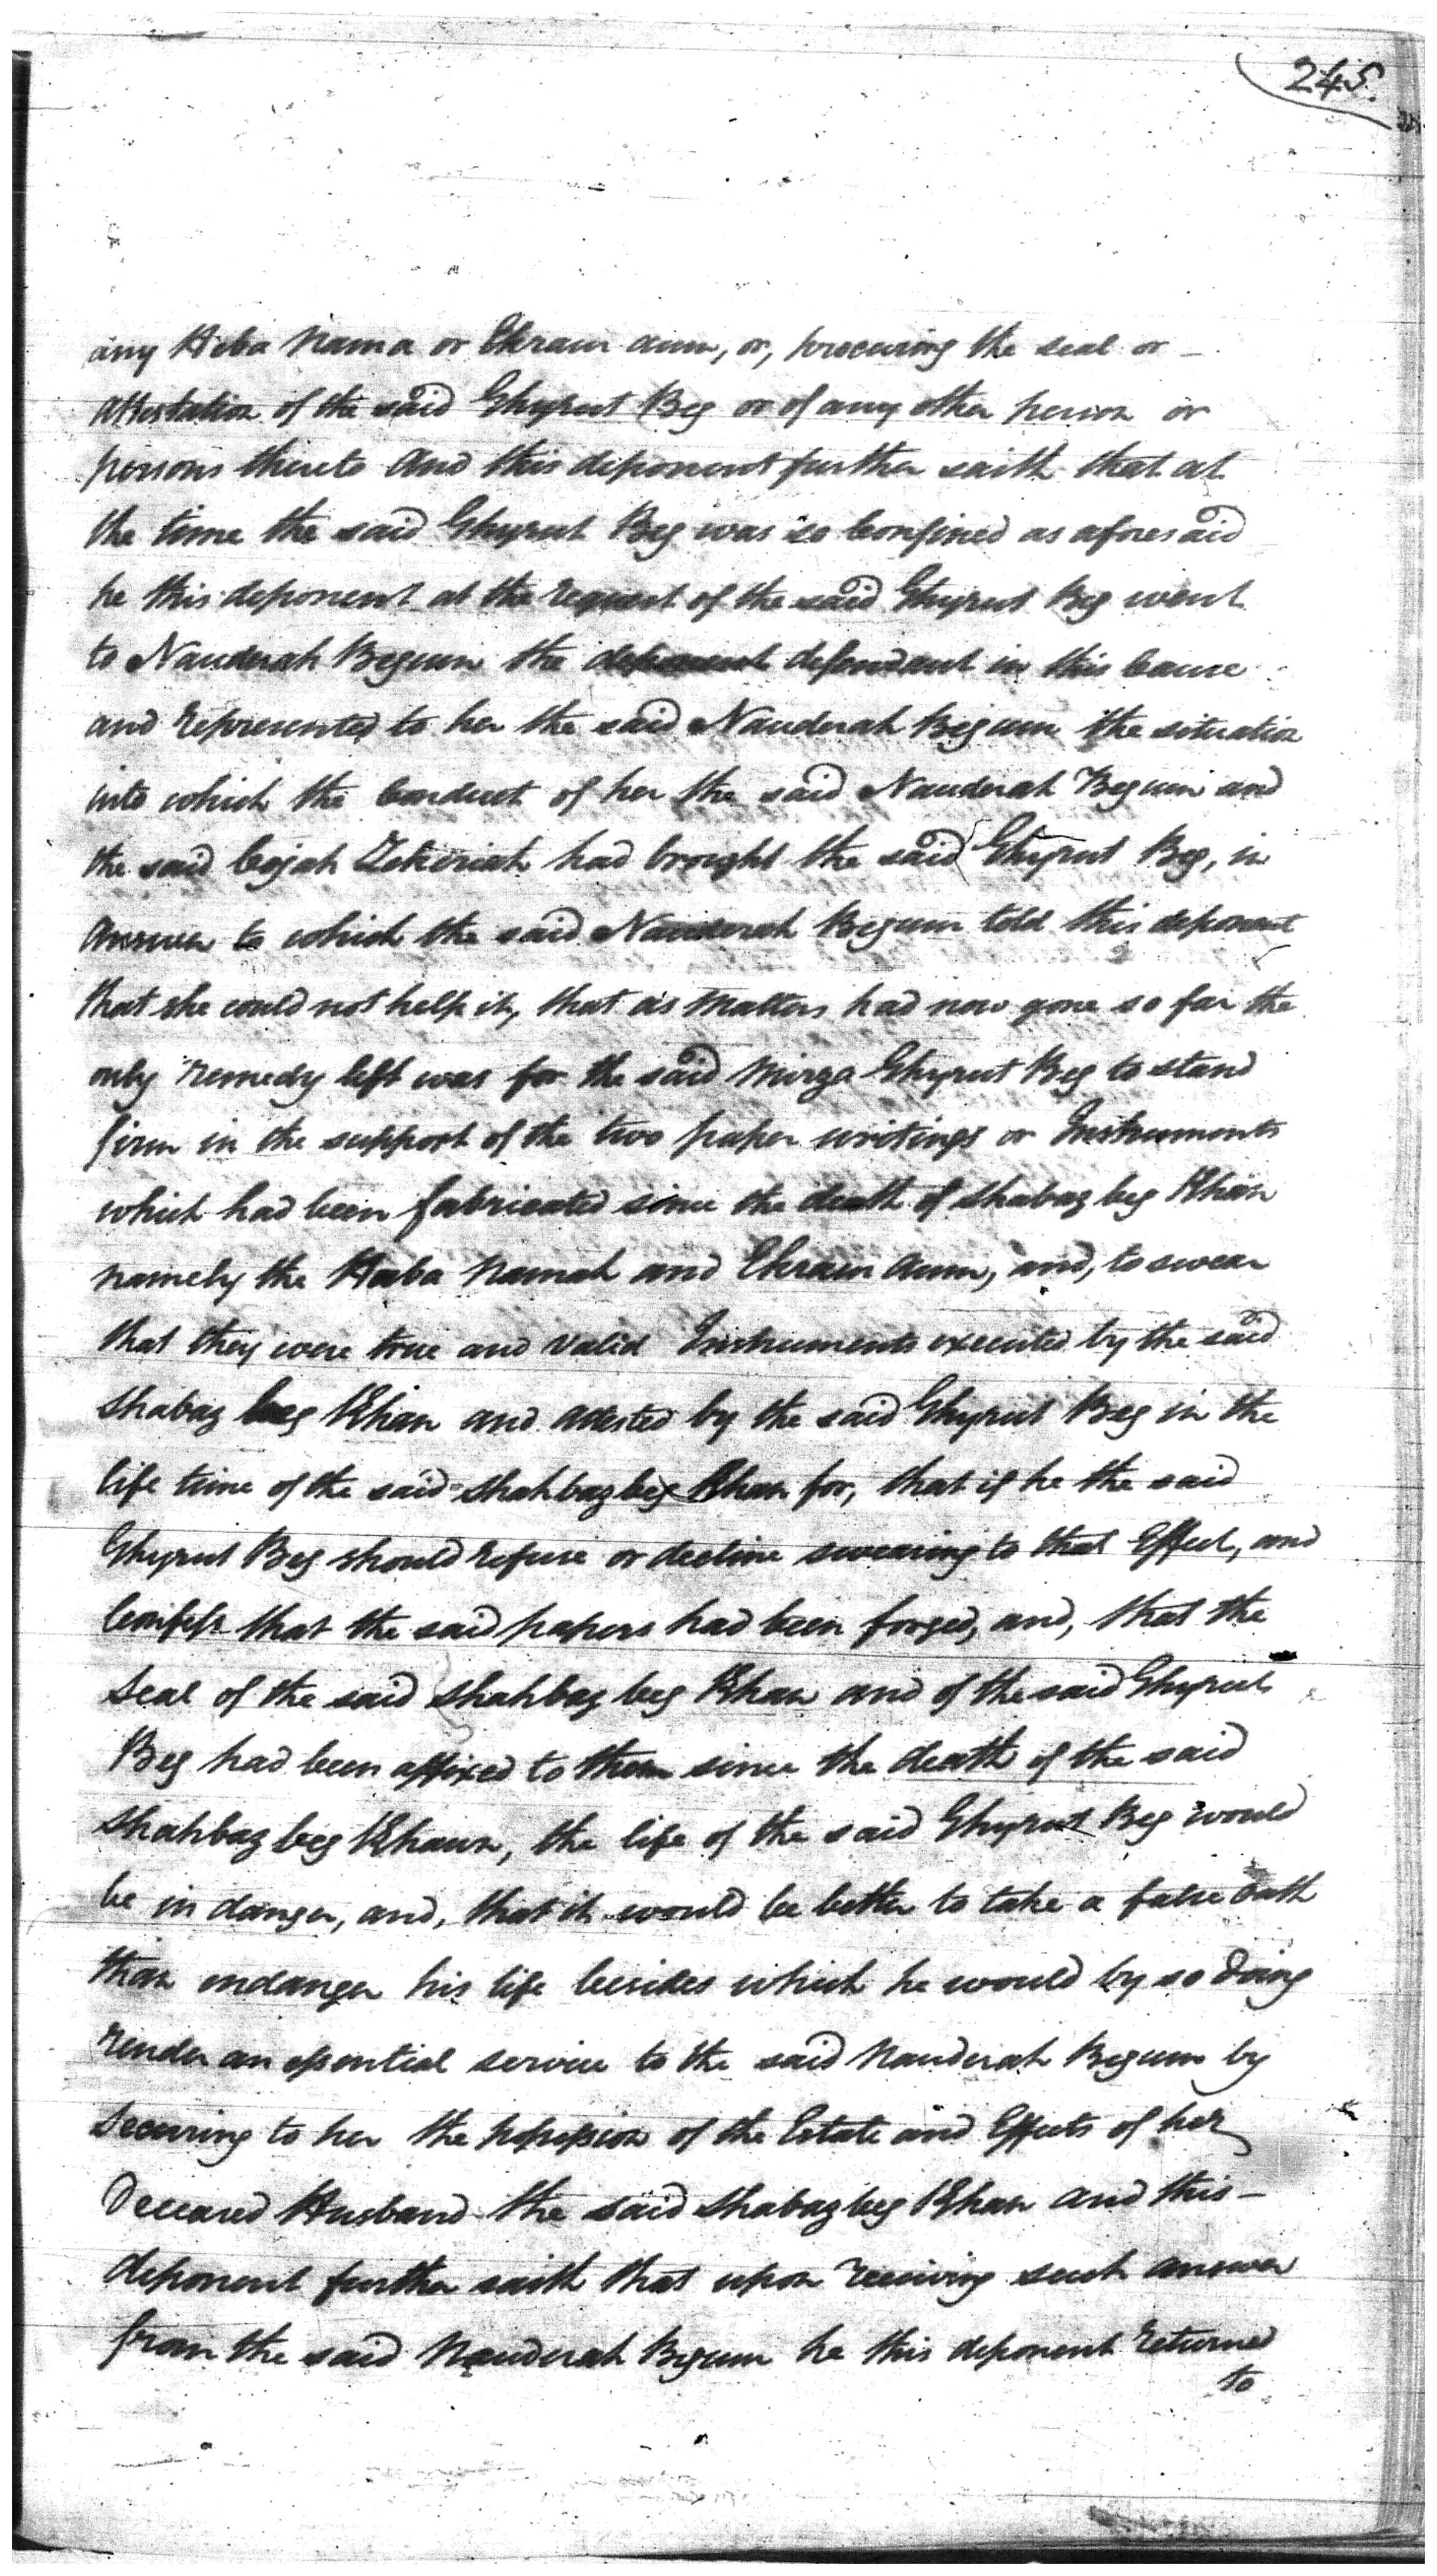 245.
any Heba Nama or Ekram aum, or, procuring the seal or -
Attestation of the said Ghyrut Beg or of any other person or
persons thereto And this deponent further saith that at
the time the said Ghyrut Beg was so Confined as aforesaid
he this deponent at the request of the said Ghyrut Beg went
to Nauderah Begum the defendant in this Cause
and represented to her the said Nauderah Begum the situation
into which the Conduct of her the said Nauderah Begum and
the said Cojah Zekeriah had brought the said Ghyrut Beg, in
Answer to which the said Nauderah Begum told this deponent
that she could not help it, that as Matters had now gone so far the
only remedy left was for the said Mirza Ghyrut Beg to stand
firm in the support of the two paper writings or Instruments
which had been fabricated since the death of Shabaz beg Khan
namely the Heba Namah and Ekram Aum, and, to swear
that they were true and valid Instruments executed by the said
Shabaz beg Khan and attested by the said Ghyrut Beg in the
life time of the said Shahbaz beg Khan for, that if he the said
Ghyrut Beg should refuse or decline swearing to that Effect, and
Confess that the said papers had been forged, and, that the
Seal of the said Shahbaz beg Khan and of the said Ghyrut
Beg had been affixed to them since the death of the said
Shahbaz beg Khaun, the life of the said Ghyrut Beg would
be in danger, and, that it would be better to take a false Oath
than endanger his life besides which he would by so doing
render an essential service to the said Nauderah Begum by
Securing to her the possession of the Estate and Effects of her
Deceased Husband the said Shabaz beg Khan And this -
deponent further saith that upon receiving such answer
from the said Nauderah Begum he this deponent returned
to